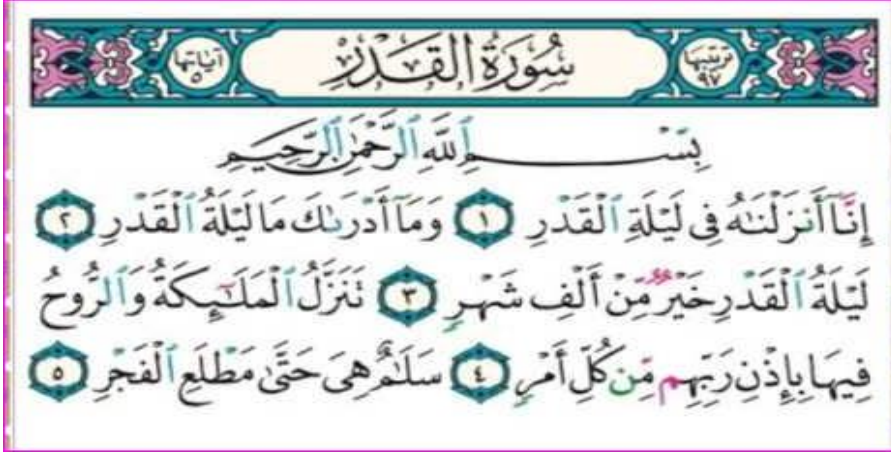 آياتها ٥ سُورَةُ القَدْرِ ترتيبها ٩٧
بِسْمِ ٱللَّهِ ٱلرَّحْمَٰنِ ٱلرَّحِيمِ
إِنَّآ أَنزَلْنَٰهُ فِى لَيْلَةِ ٱلْقَدْرِ ١ وَمَآ أَدْرَىٰكَ مَا لَيْلَةُ ٱلْقَدْرِ ٢
لَيْلَةُ ٱلْقَدْرِ خَيْرٌ مِّنْ أَلْفِ شَهْرٍ ٣ تَنَزَّلُ ٱلْمَلَٰٓئِكَةُ وَٱلرُّوحُ
فِيهَا بِإِذْنِ رَبِّهِم مِّن كُلِّ أَمْرٍ ٤ سَلَٰمٌ هِىَ حَتَّىٰ مَطْلَعِ ٱلْفَجْرِ ٥